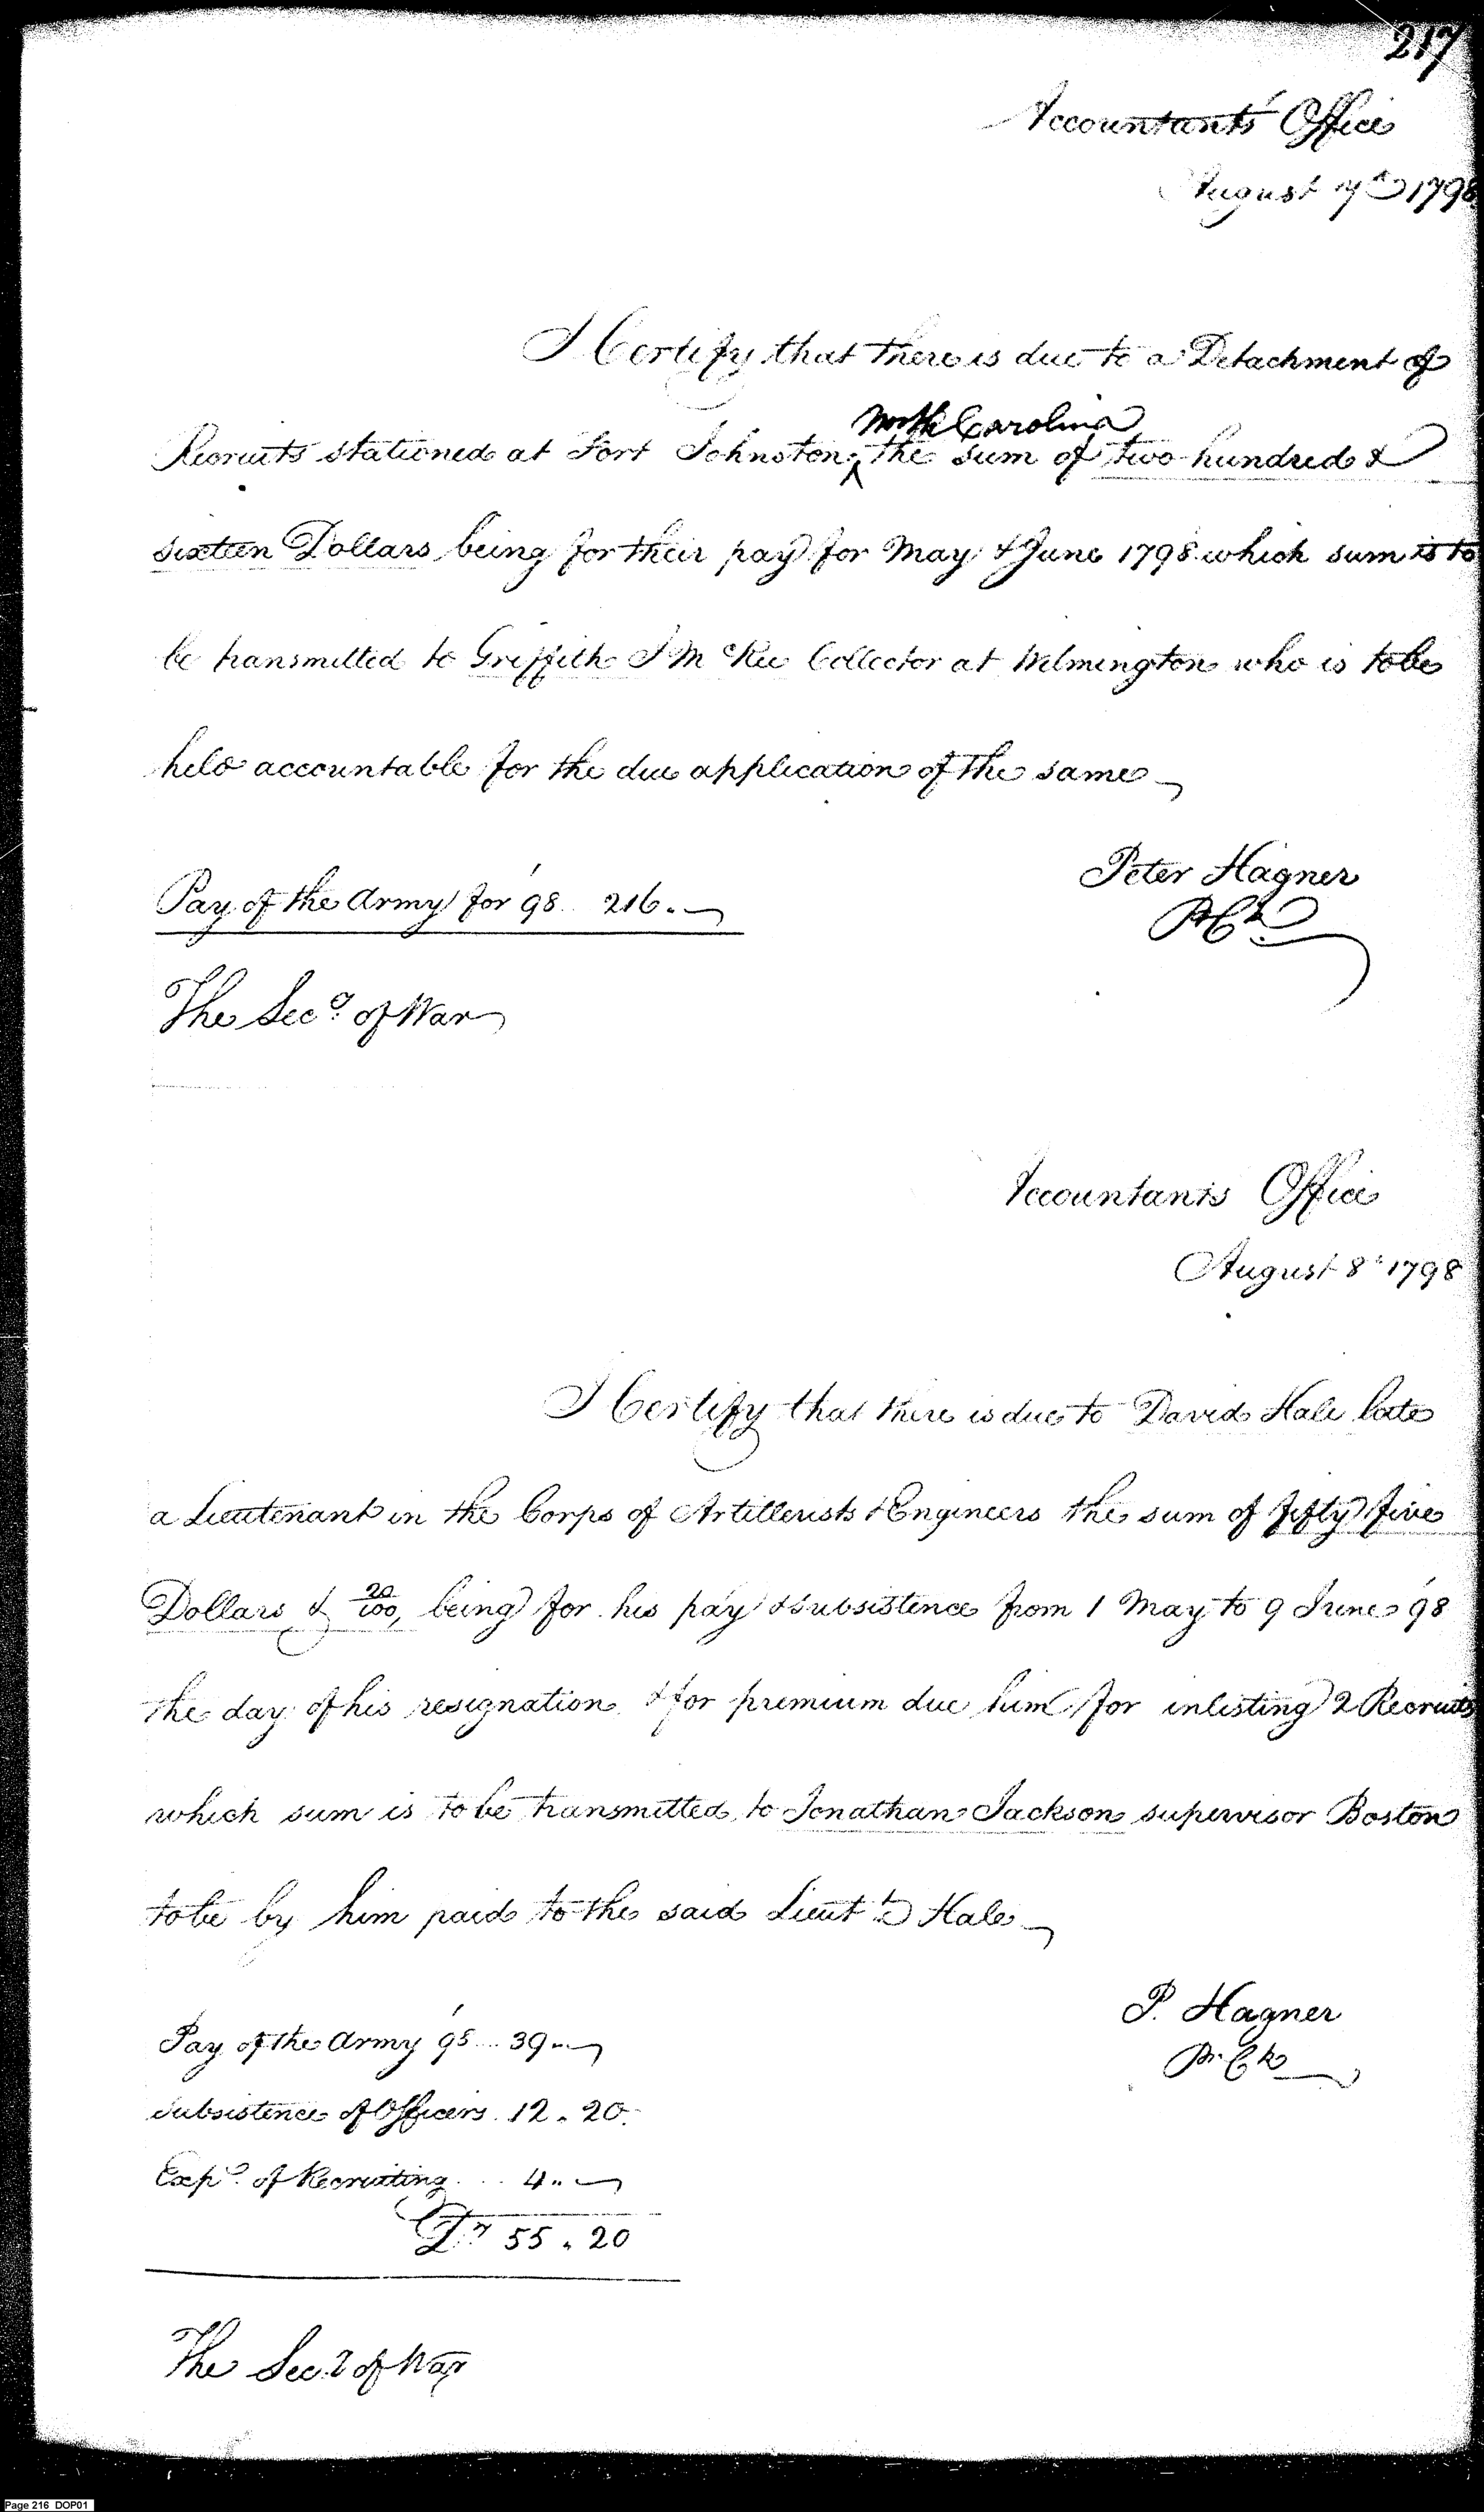 217
Accountants' Office
August 7th 1798
I Certify that there is due to a Detachment of
North Carolina
Recruits stationed at Fort Johnston, the sum of two hundred &
sixteen Dollars being for their pay for May & June 1798 which sum is to
be transmitted to Griffith J McRee Collector at Wilmington who is to be
held accountable for the due application of the same
Peter Hagner
Pay of the Army for '98 .. 216. —
The Secy. of War
Accountants Office
August 8th 1798
I Certify that there is due to David Hale late
a Lieutenant in the Corps of Artillerists & Engineers the sum of fifty five
Dollars & 20/100, being for his pay & subsistence from 1 May to 9 June '98
the day of his resignation & for premium due him for inlisting 2 Recruits
which sum is to be transmitted to Jonathan Jackson supervisor Boston
to be by him paid to the said Lieutt. Hale
P. Hagner
Pr. Ck
Pay of the Army '98 ... 39 .. —
Subsistence of Officers . 12 . 20
Exps. of Recruiting ... 4 .. —
Drs 55 . 20
The Secy of War
Page 216 DOP01